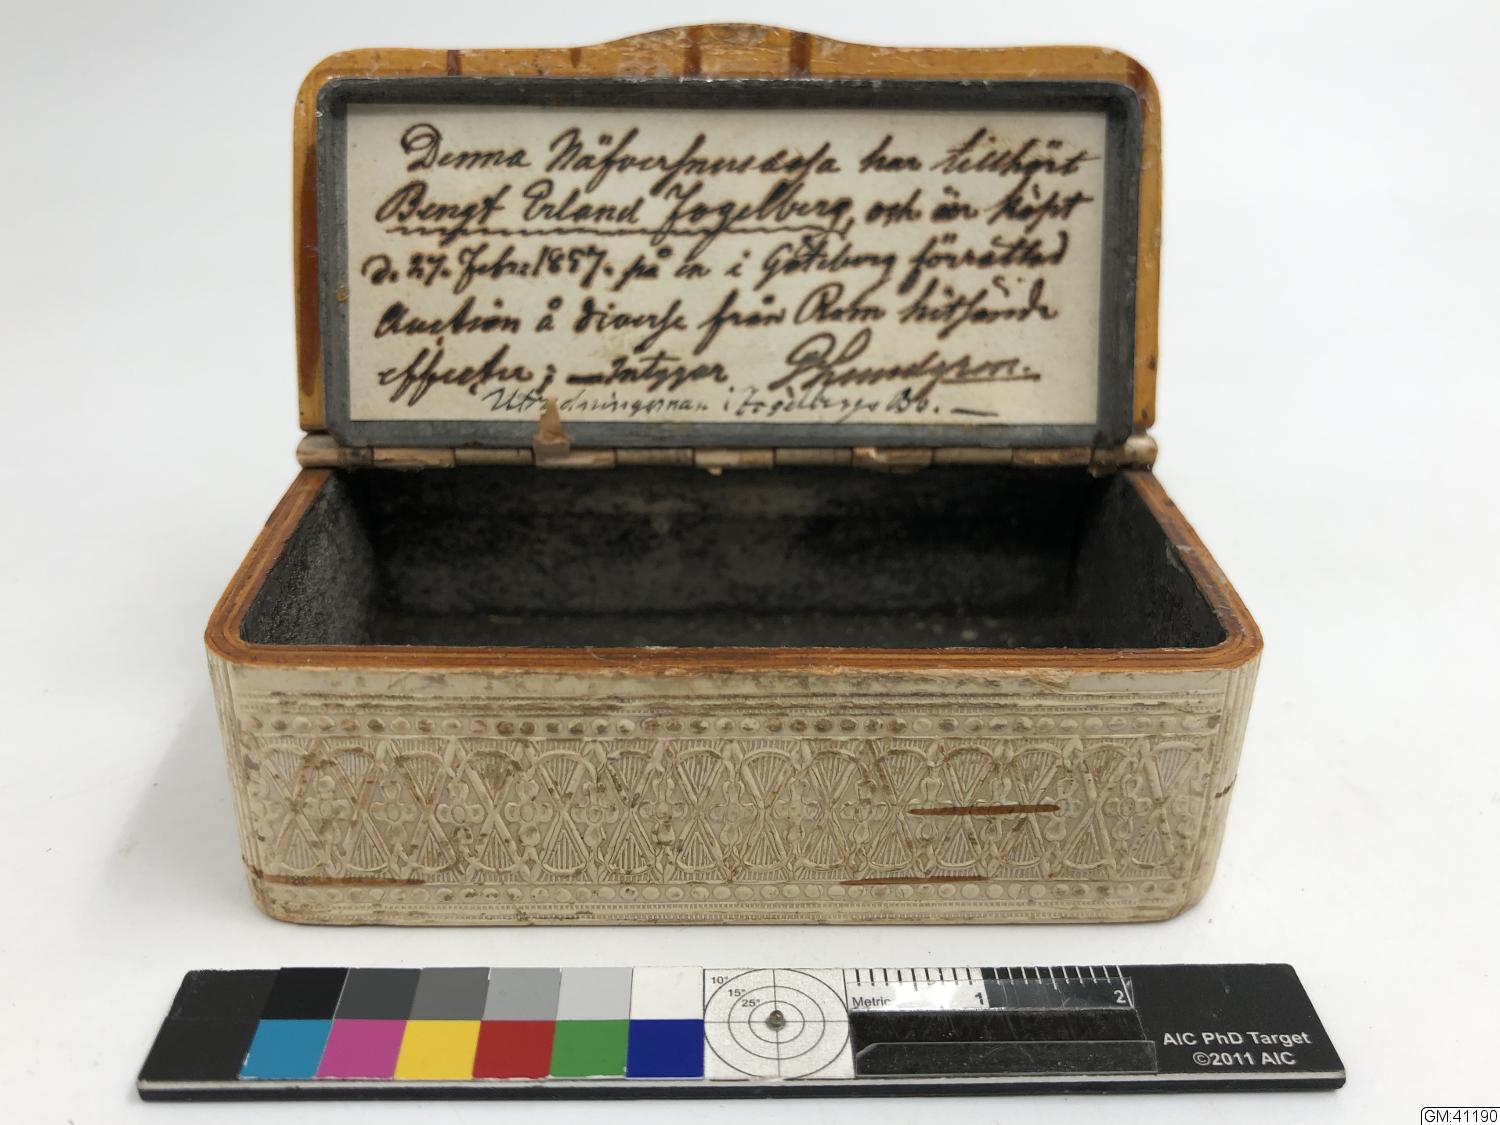 Denna Näfversnusdosa har tillhört
Bengt Erland Fogelberg, och är köpt
d. 27. Febr. 1857. på en i Göteborg förrättad
Auction å diverse från Rom hitsände
effecter; — Intygar P Lundgren.
Utredningsman i Fogelbergs Bo. —
10°
15°
25°
Metric 1 2
AIC PhD Target
©2011 AIC
GM:41190